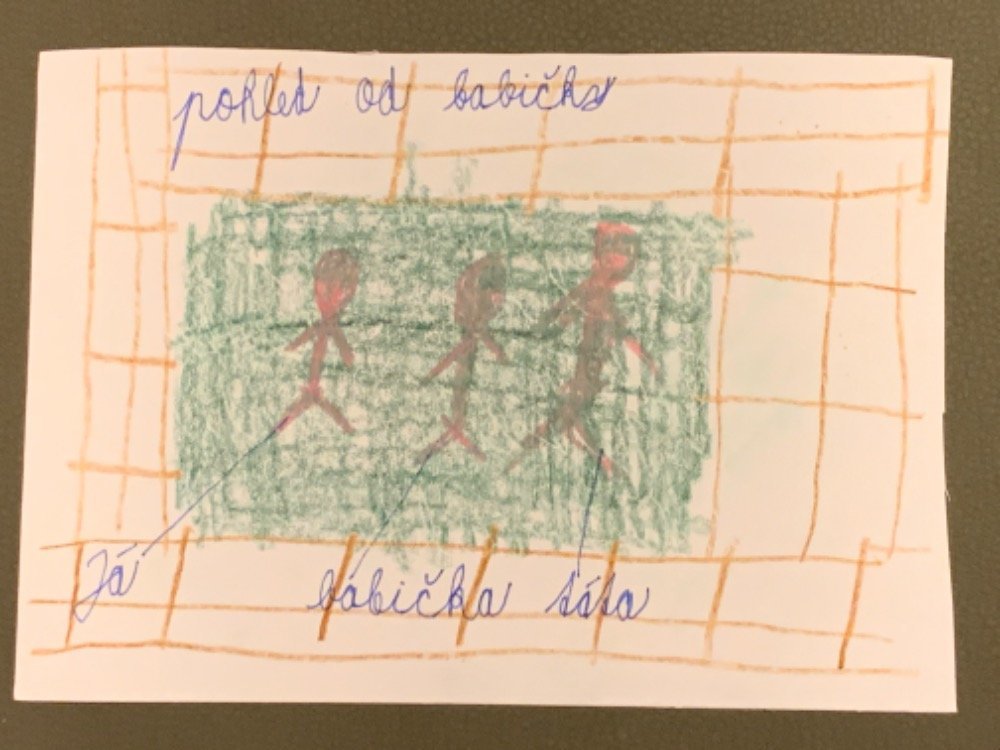 pohled od babičky
Já babička táta